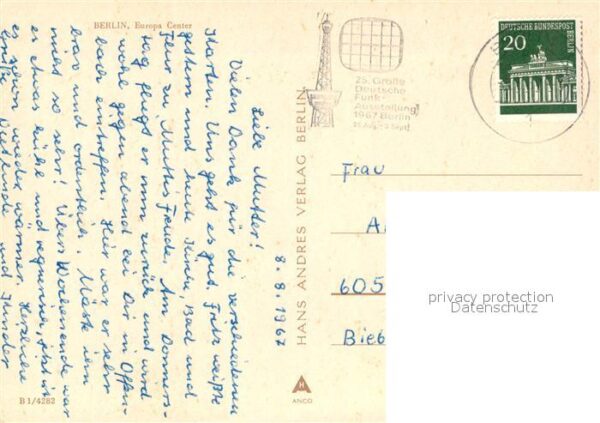 BERLIN, Europa Center
8.8.1967
Liebe Mutter!
Vielen Dank für die verschiedenen
Karten. Uns geht es gut. Fritz weißte
gestern und heute Küche, Bad und
Flur zu Muttis Freude. Am Donners-
tag fliegt er nun zurück und wird
wohl gegen abend bei Dir in Offen-
bach eintreffen. Hier war er sehr
brav und ordentlich. Mäste ihn
nicht so sehr! Übers Wochenende war
es etwas kühl und regnerisch, jetzt ist
es schon wieder wärmer. Herzliche
Grüße Dietlinde und Kinder
B 1/4282
HANS ANDRES VERLAG BERLIN
ANCO
25. Große
Deutsche
Funk-
Ausstellung
1967 Berlin
DEUTSCHE BUNDESPOST
BERLIN
20
Frau
A
605
Bieb
privacy protection
Datenschutz